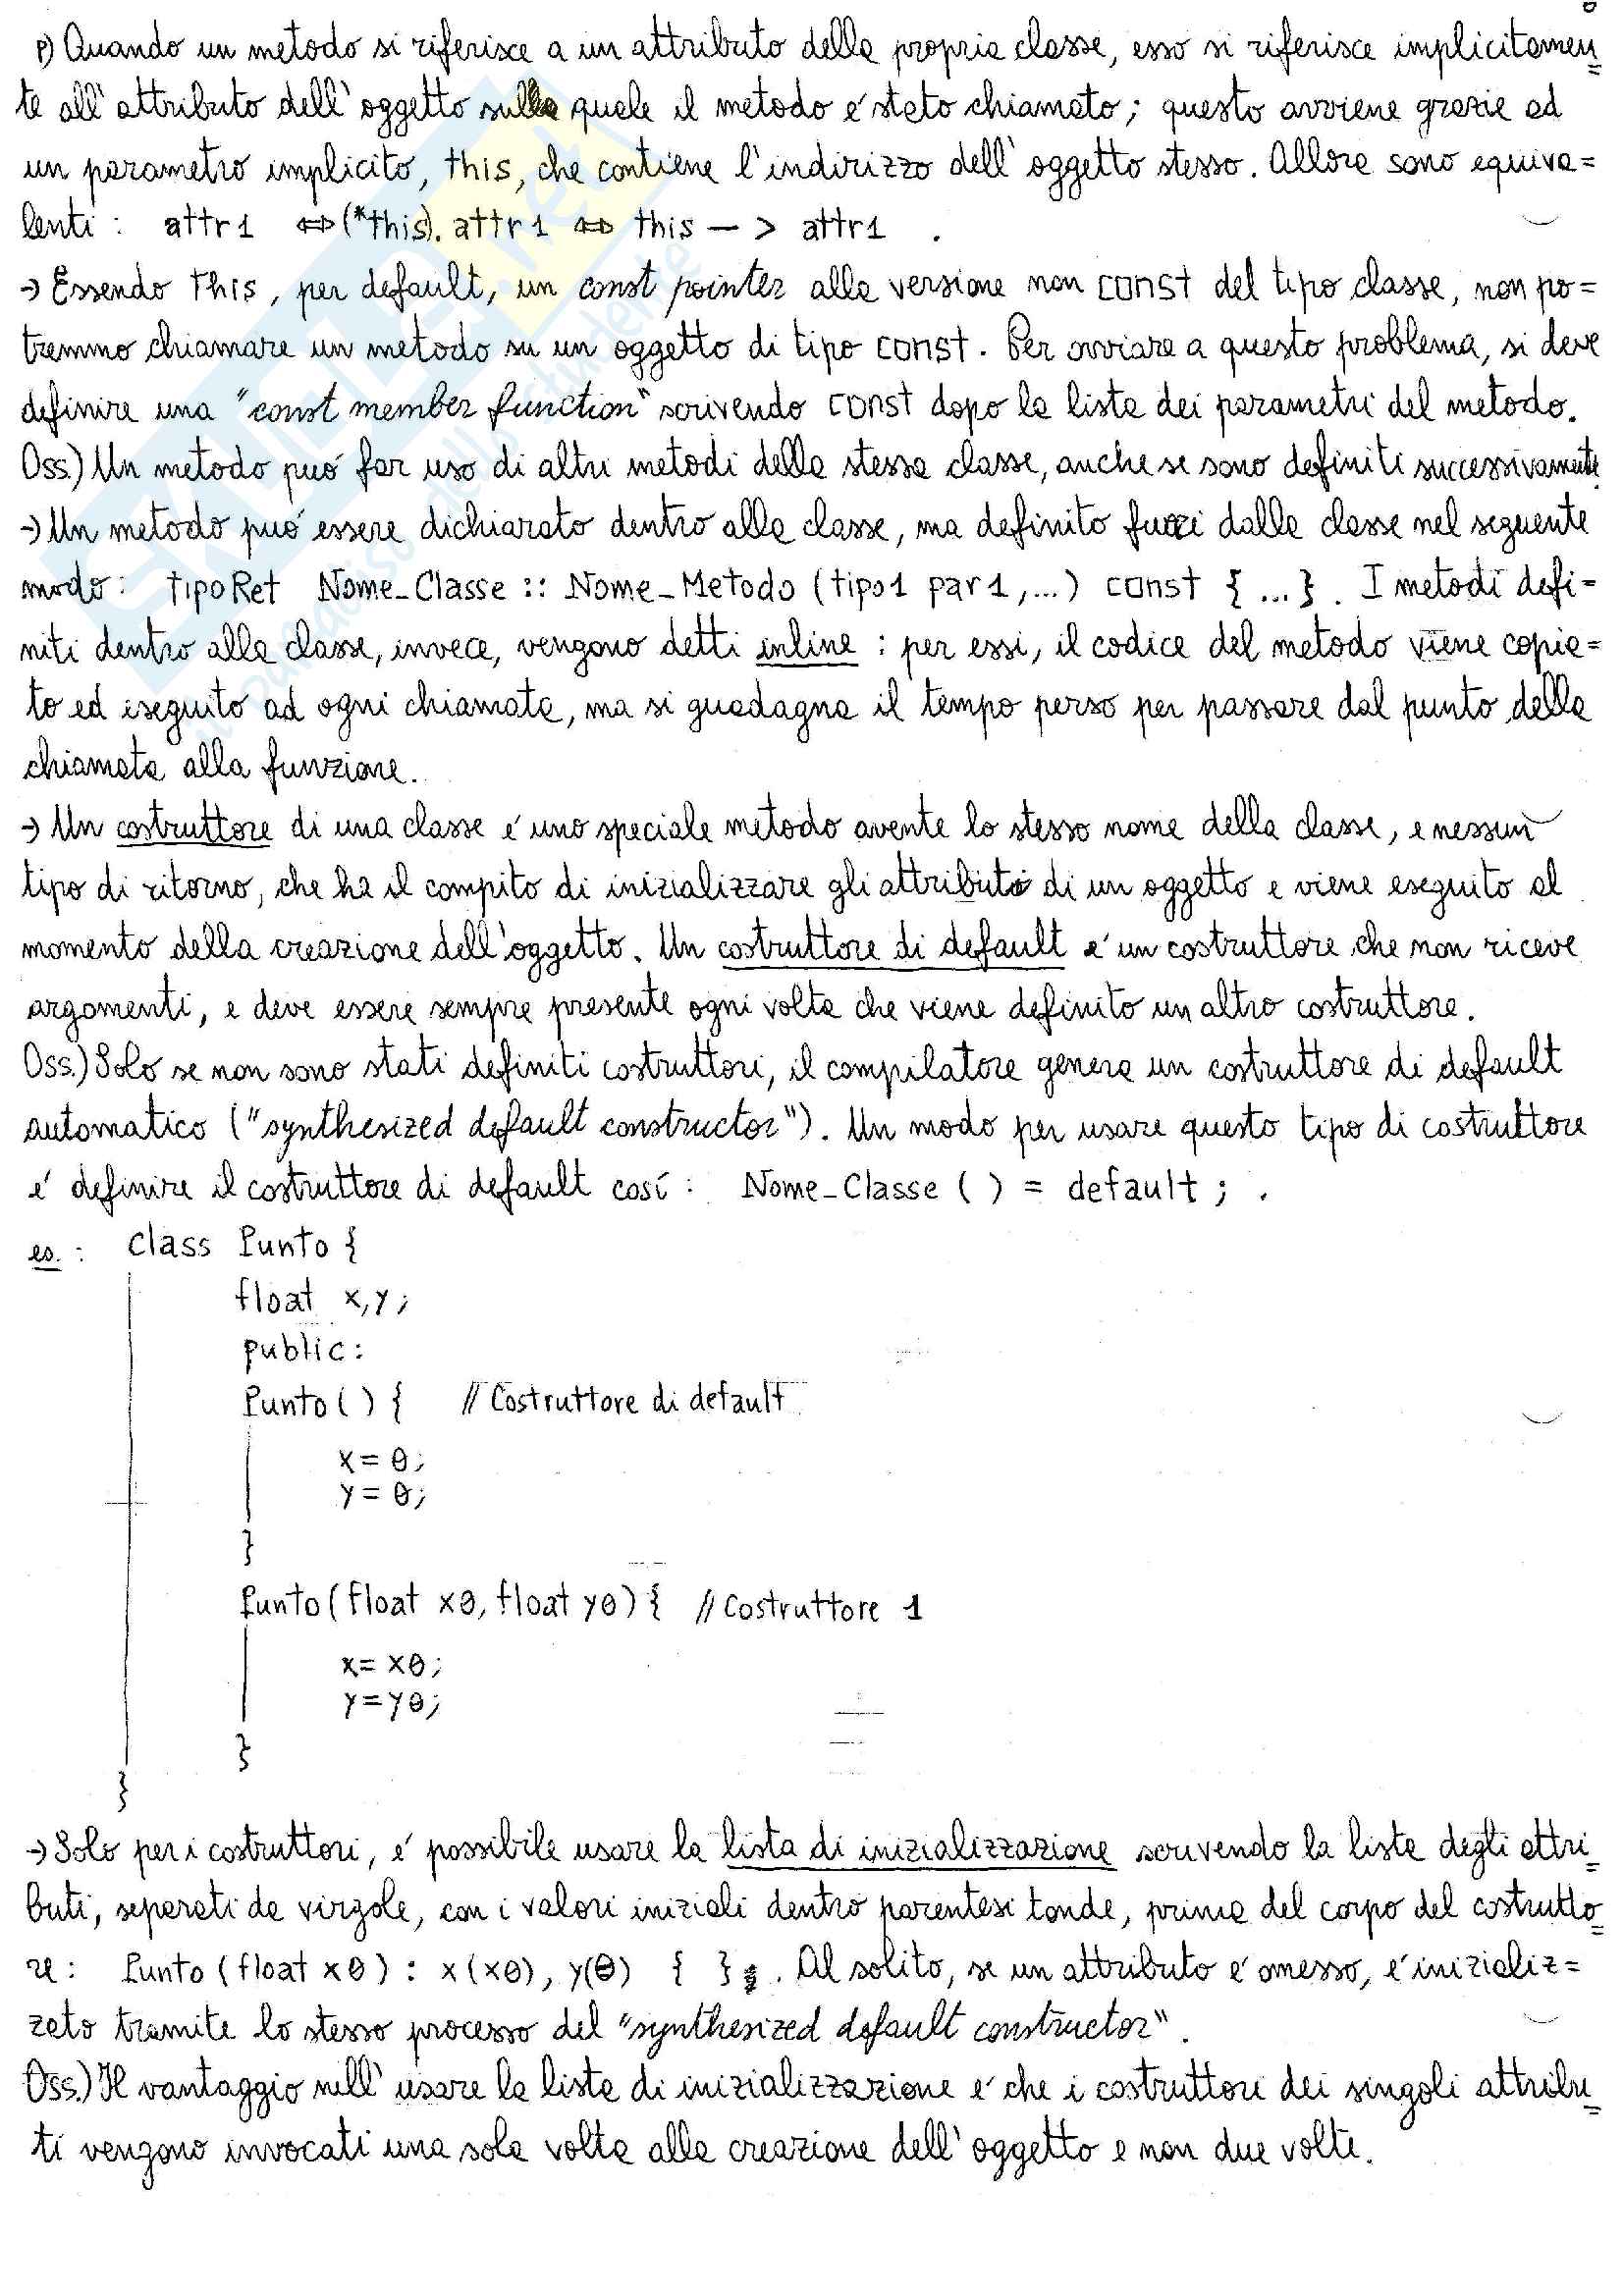 P) Quando un metodo si riferisce a un attributo della propria classe, esso si riferisce implicitamen=
te all'attributo dell'oggetto sulla quale il metodo e' stato chiamato; questo avviene grazie ad
un parametro implicito, this, che contiene l'indirizzo dell'oggetto stesso. Allora sono equiva=
lenti: attr1 ⇔ (*this). attr1 ⇔ this -> attr1 .
→ Essendo This, per default, un const pointer alla versione non const del tipo classe, non po=
tremmo chiamare un metodo su un oggetto di tipo const. Per ovviare a questo problema, si deve
definire una "const member function" scrivendo const dopo la lista dei parametri del metodo.
Oss.) Un metodo puó far uso di altri metodi della stessa classe, anche se sono definiti successivamente.
→ Un metodo puó essere dichiarato dentro alla classe, ma definito fuori dalla classe nel seguente
modo: TipoRet Nome_Classe :: Nome_Metodo (tipo1 par1,...) const { ... }. I metodi defi=
niti dentro alla classe, invece, vengono detti inline : per essi, il codice del metodo viene copia=
to ed eseguito ad ogni chiamata, ma si guadagna il tempo perso per passare dal punto della
chiamata alla funzione.
→ Un costruttore di una classe é uno speciale metodo avente lo stesso nome della classe, e nessun
tipo di ritorno, che ha il compito di inizializzare gli attributi di un oggetto e viene eseguito al
momento della creazione dell'oggetto. Un costruttore di default e' un costruttore che non riceve
argomenti, e deve essere sempre presente ogni volta che viene definito un altro costruttore.
Oss.) Solo se non sono stati definiti costruttori, il compilatore genera un costruttore di default
automatico ("synthesized default constructor"). Un modo per usare questo tipo di costruttore
e' definire il costruttore di default cosí: Nome_Classe ( ) = default ; .
es. : class Punto {
float x,y;
public:
Punto( ) { // Costruttore di default
x = 0;
y = 0;
}
Punto(float x0, float y0) { // Costruttore 1
x = x0;
y = y0;
}
}
→ Solo per i costruttori, e' possibile usare la lista di inizializzazione scrivendo la lista degli attri=
buti, separati da virgole, con i valori iniziali dentro parentesi tonde, prima del corpo del costrutto=
re: Punto (float x0) : x(x0), y(0) { } . Al solito, se un attributo e' omesso, e' inizializ=
zato tramite lo stesso processo del "synthesized default constructor".
Oss.) Il vantaggio nell'usare la lista di inizializzazione e' che i costruttori dei singoli attribu=
ti vengono invocati una sola volta alla creazione dell'oggetto e non due volte.